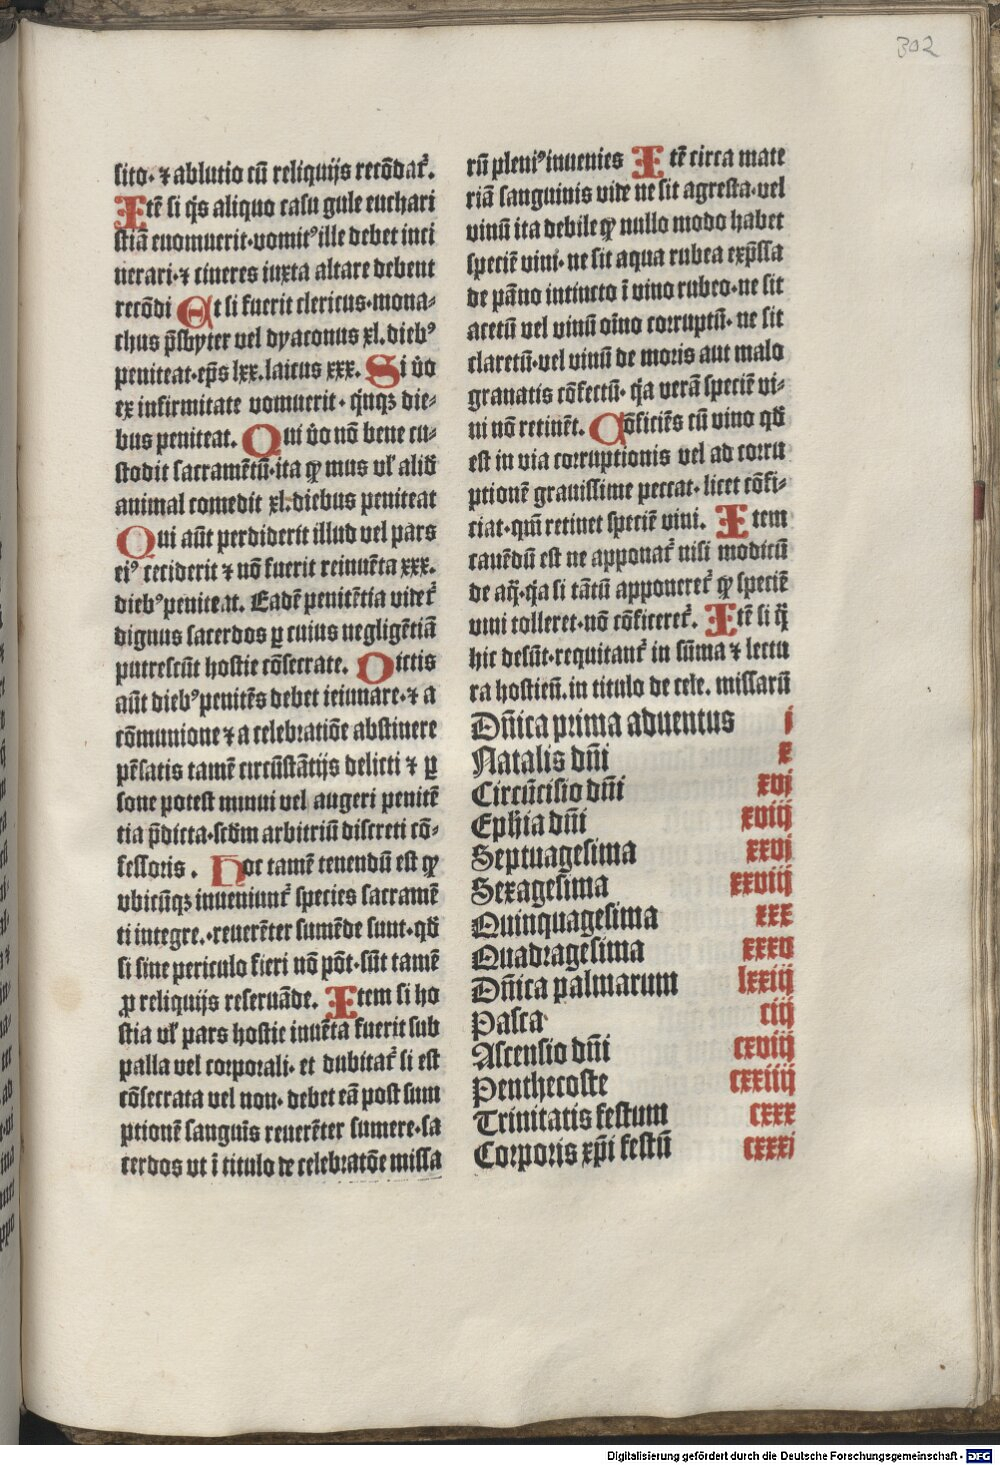 302
sito· ⁊ ablutio cū reliquijs recōdat᷑.
Itē si q̇s aliquo casu gule euchari
stiā euomuerit·vomitꝰ ille debet inci
nerari·⁊ cineres iuxta altare debent
recōdi Et si fuerit clericus·mona⸗
chus p̄sbyter vel dyaconus xl. diebꝰ
peniteat·ep̄s lxx. laicus xxx. Si v̇o
ex infirmitate vomuerit· q̇nqꝫ die⸗
bus peniteat. Qui v̇o nō bene cu⸗
stodit sacramētū·ita ꝙ mus vꝉ aliđ
animal comedit xl. diebus peniteat
Qui aūt perdiderit illud vel pars
eiꝰ ceciderit ⁊ nō fuerit reinuēta xxx.
diebꝰ peniteat. Eadē penitētia videt᷑
dignus sacerdos ꝑ cuius negligētiā
putrescūt hostie cōsecrate. Dictis
aūt diebꝰ penitēs debet ieiunare·⁊ a
cōmunione ⁊ a celebratiōe abstinere
pēsatis tamē circūstātijs delicti ⁊ ꝑ
sone potest minui vel augeri penitē
tia p̄dicta·scđm arbitriū discreti cō⸗
fessoris. Hoc tamē tenendū est ꝙ
vbicūqꝫ inueniunt᷑ species sacramē
ti integre.·reuerēter sumēde sunt·qđ
si sine periculo fieri nō pōt·sūt tamē
ꝓ reliquijs reseruāde. Item si ho
stia vꝉ pars hostie inuēta fuerit sub
palla vel corporali· et dubitat᷑ si est
cōsecrata vel non· debet eā post sum
ptionē sanguīs reuerēter sumere·sa
cerdos ut ī titulo de celebratōe missa
rū pleniꝰ inuenies Itē circa mate
riā sanguinis vide ne sit agresta·vel
vinū ita debile ꝙ nullo modo habet
speciē vini· ne sit aqua rubea exp̄ssa
de pāno intincto ī vino rubeo·ne sit
acetū vel vinū oīno corruptū· ne sit
claretū·vel vinū de moris aut malo
granatis cōfectū· q̇a verā speciē vi⸗
ni nō retinēt. Cōficiēs cū vino qđ
est in via corruptionis vel ad corru
ptionē grauissime peccat· licet cōfi⸗
ciat·qm̄ retinet speciē vini. Item
cauēdū est ne apponat᷑ nisi modicū
de aq̇·q̇a si tātū apponeret᷑ ꝙ speciē
vini tolleret·nō cōficeret᷑. Itē si q̄
hic desūt·requirant᷑ in sūma ⁊ lectu
ra hostieñ. in titulo de cele. missarū
Dn̄ica prima aduentus j
Natalis dn̄i x
Circūcisio dn̄i xvj
Ephia dn̄i xviij
Septuagesima xxvj
Sexagesima xxviij
Quinquagesima xxx
Quadragesima xxxv
Dn̄ica palmarum lxxiij
Pasca ciij
Ascensio dn̄i cxviij
Penthecoste cxxiiij
Trinitatis festum cxxx
Corporis xp̄i festū cxxxj
Digitalisierung gefördert durch die Deutsche Forschungsgemeinschaft - DFG